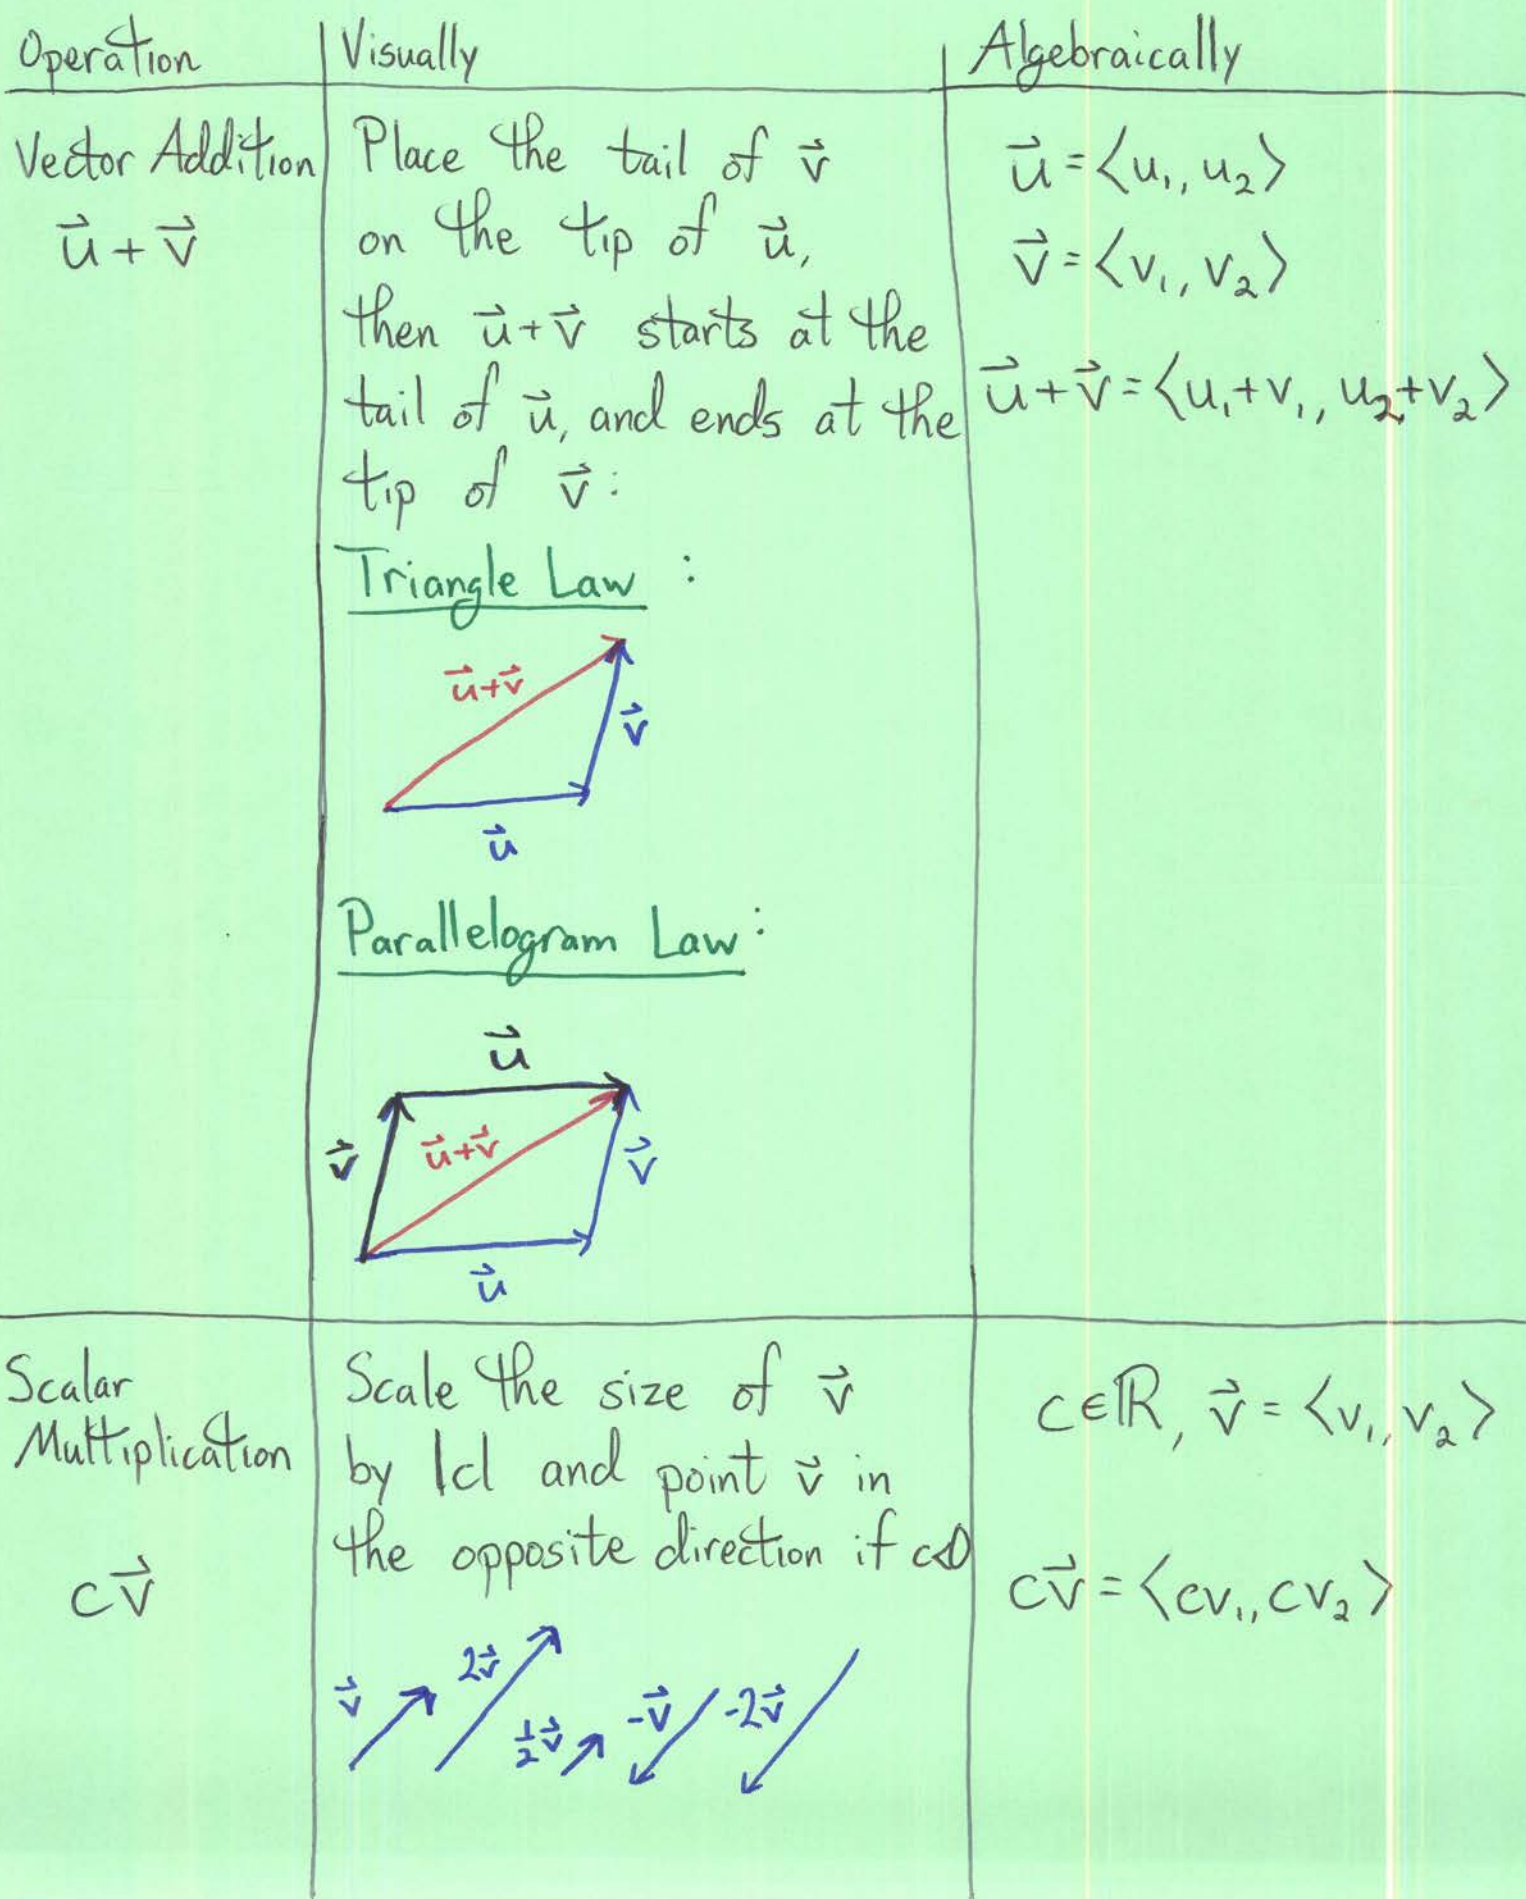 Operation | Visually | Algebraically
Vector Addition
u⃗ + v⃗
Place the tail of v⃗
on the tip of u⃗,
then u⃗+v⃗ starts at the
tail of u⃗, and ends at the
tip of v⃗:
Triangle Law :
u⃗+v⃗
v⃗
u⃗
Parallelogram Law:
u⃗
v⃗
u⃗+v⃗
v⃗
u⃗
u⃗ = ⟨u₁, u₂⟩
v⃗ = ⟨v₁, v₂⟩
u⃗+v⃗ = ⟨u₁+v₁, u₂+v₂⟩
Scalar
Multiplication
cv⃗
Scale the size of v⃗
by |c| and point v⃗ in
the opposite direction if c<0
v⃗
2v⃗
½v⃗
-v⃗
-2v⃗
c∈ℝ, v⃗ = ⟨v₁, v₂⟩
cv⃗ = ⟨cv₁, cv₂⟩